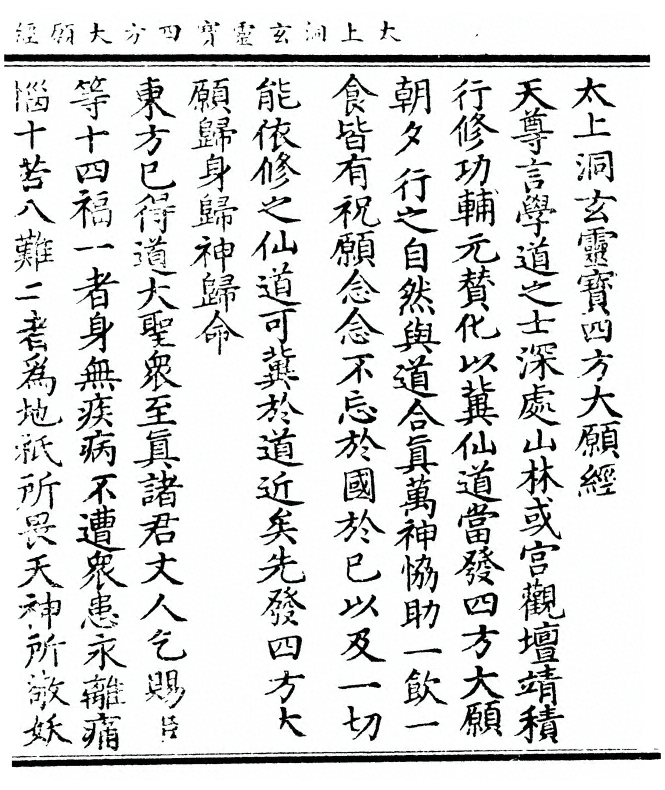 太上洞玄靈寳四方大願經
太上洞玄靈寳四方大願經
天尊言學道之士深處山林或宮觀壇靖積
行修功輔元賛化以冀仙道當發四方大願
朝夕行之自然與道合眞萬神恊助一飲一
食皆有祝願念念不忘於國於已以及一切
能依修之仙道可冀於道近矣先發四方大
願歸身歸神歸命
東方已得道大聖衆至眞諸君丈人乞賜臣
等十四福一者身無疾病不遭衆患永離痛
惱十苦八難二者爲地祇所畏天神所敬妖